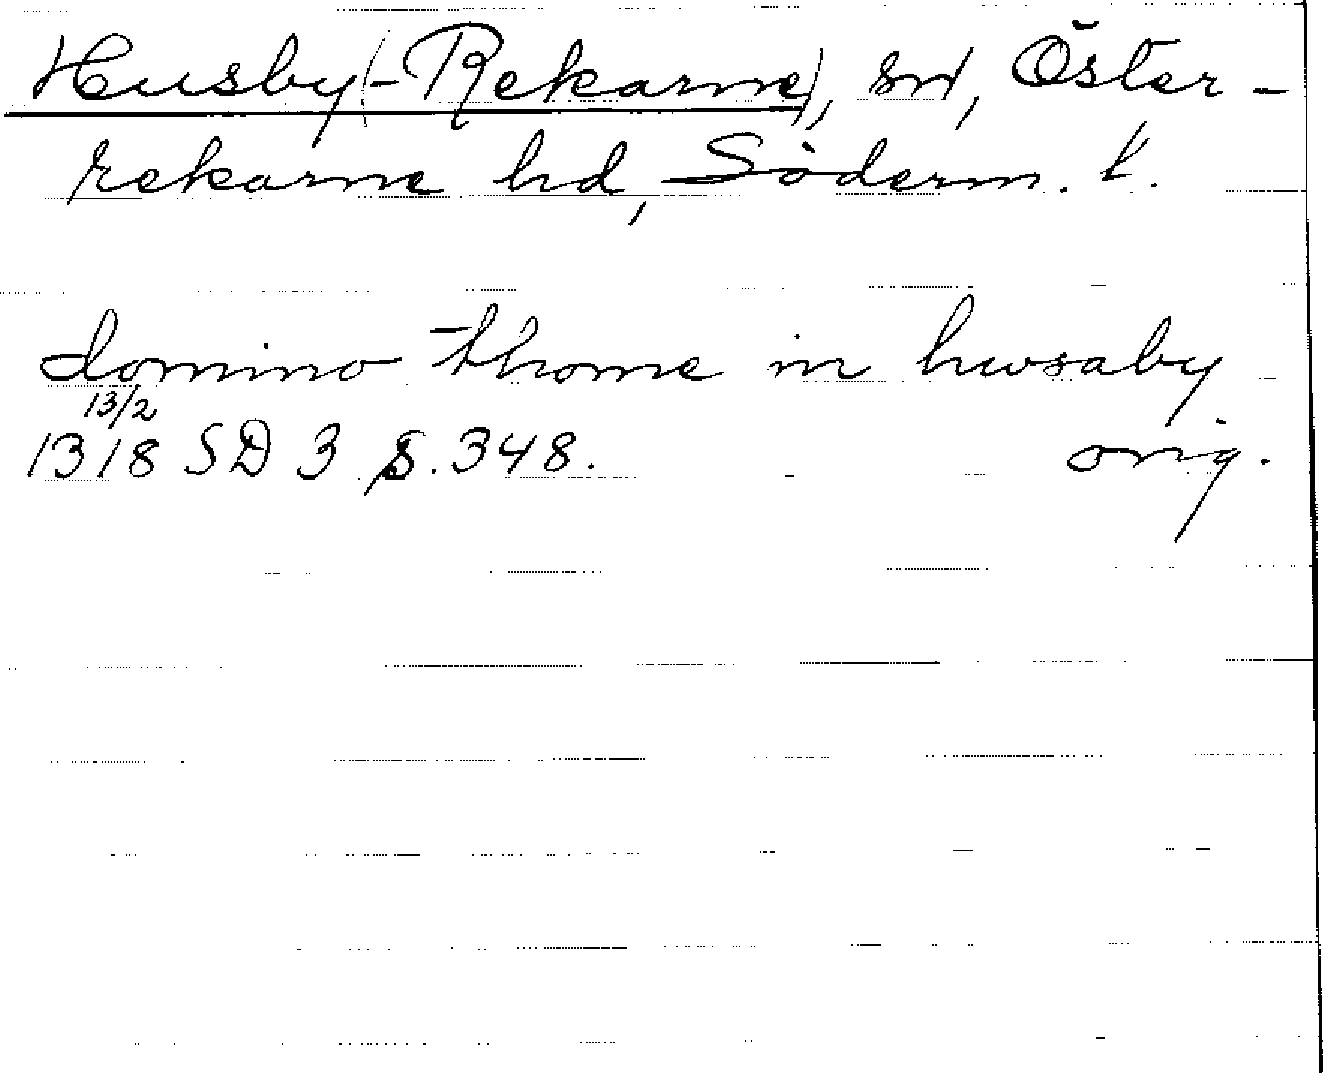 Husby(-Rekarne), sn, Öster-
rekarne hd, Söderm. l.
domino thome in hwsaby
13/2
1318 SD 3 s. 348. orig.